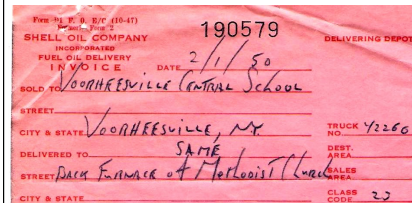 Form 94 F. O. E/C (10-47)
190579
SHELL OIL COMPANY
INCORPORATED
DELIVERING DEPOT
FUEL OIL DELIVERY
INVOICE
DATE 2/1/50
SOLD TO VOORHEESVILLE CENTRAL SCHOOL
STREET
CITY & STATE VOORHEESVILLE, NY
TRUCK NO. 42260
DELIVERED TO SAME
DEST. AREA
STREET BACK FURNACE of METHODIST CHURCH
SALES AREA
CITY & STATE
CLASS CODE 23